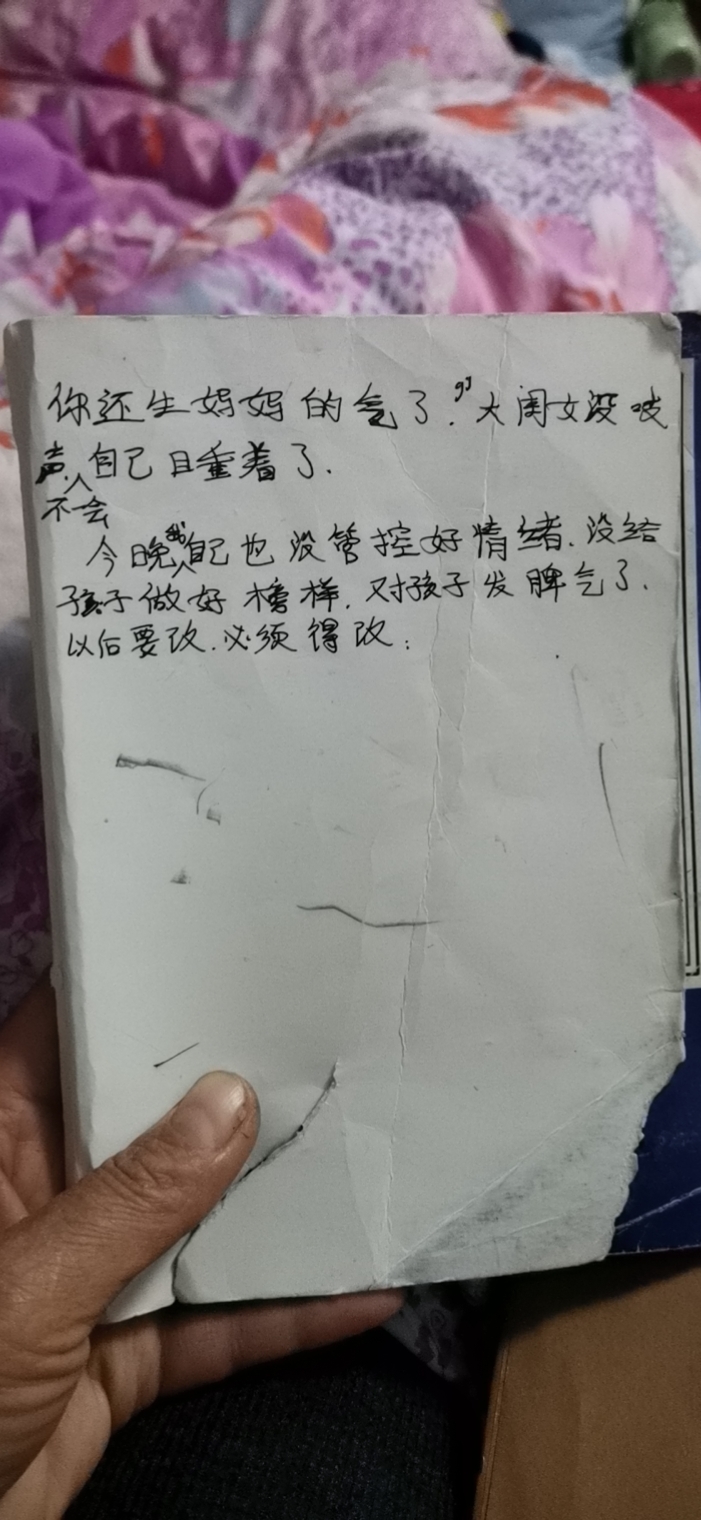 你还生妈妈的气了."大闺女没吱
声.自己睡着了.
不会
今晚我自己也没管控好情绪.没给
孩子做好榜样.对孩子发脾气了.
以后要改.必须得改: